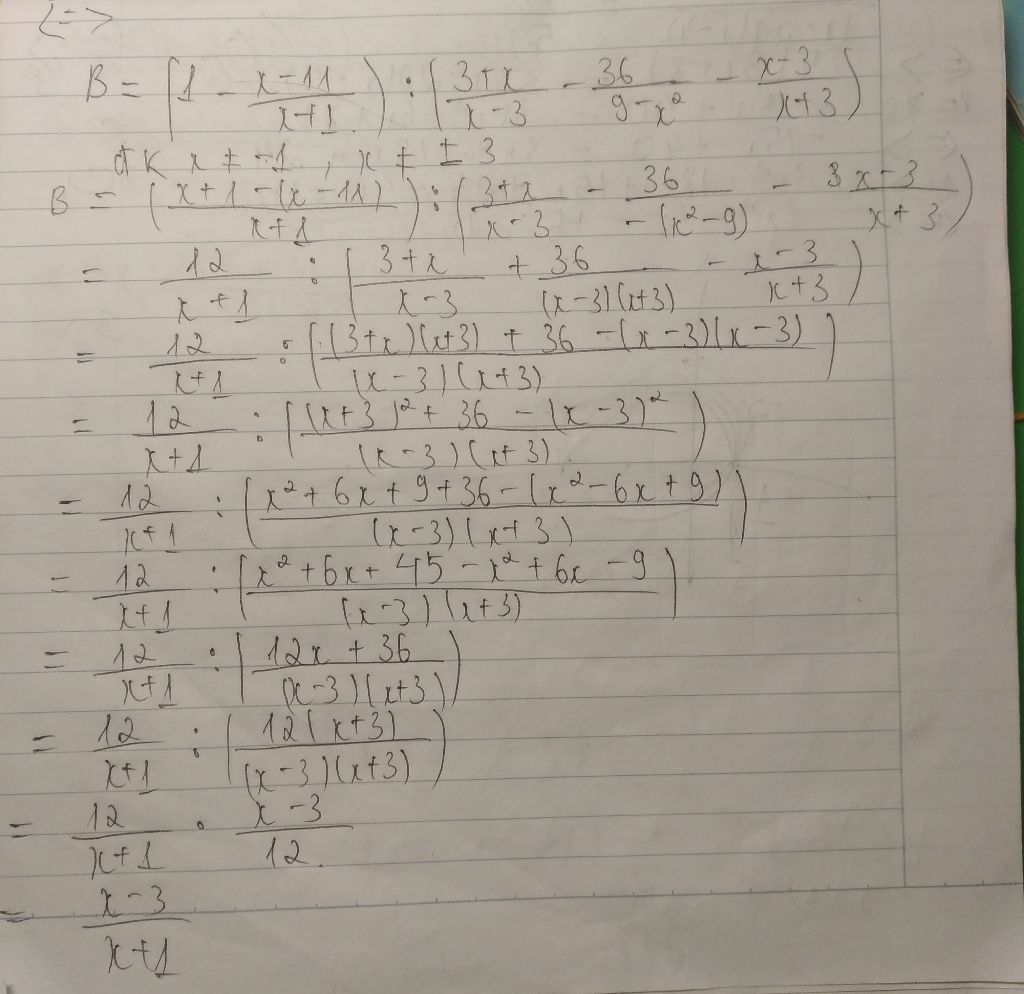 <=>
B = (1 - \frac{x-11}{x+1}) : (\frac{3+x}{x-3} - \frac{36}{9-x^2} - \frac{x-3}{x+3})
đk x ≠ -1 , x ≠ ± 3
B = (\frac{x+1-(x-11)}{x+1}) : (\frac{3+x}{x-3} - \frac{36}{-(x^2-9)} - \frac{3x-3}{x+3})
= \frac{12}{x+1} : (\frac{3+x}{x-3} + \frac{36}{(x-3)(x+3)} - \frac{x-3}{x+3})
= \frac{12}{x+1} : (\frac{(3+x)(x+3) + 36 - (x-3)(x-3)}{(x-3)(x+3)})
= \frac{12}{x+1} : (\frac{(x+3)^2 + 36 - (x-3)^2}{(x-3)(x+3)})
= \frac{12}{x+1} : (\frac{x^2+6x+9+36-(x^2-6x+9)}{(x-3)(x+3)})
= \frac{12}{x+1} : (\frac{x^2+6x+45-x^2+6x-9}{(x-3)(x+3)})
= \frac{12}{x+1} : (\frac{12x+36}{(x-3)(x+3)})
= \frac{12}{x+1} : (\frac{12(x+3)}{(x-3)(x+3)})
= \frac{12}{x+1} . \frac{x-3}{12.}
= \frac{x-3}{x+1}